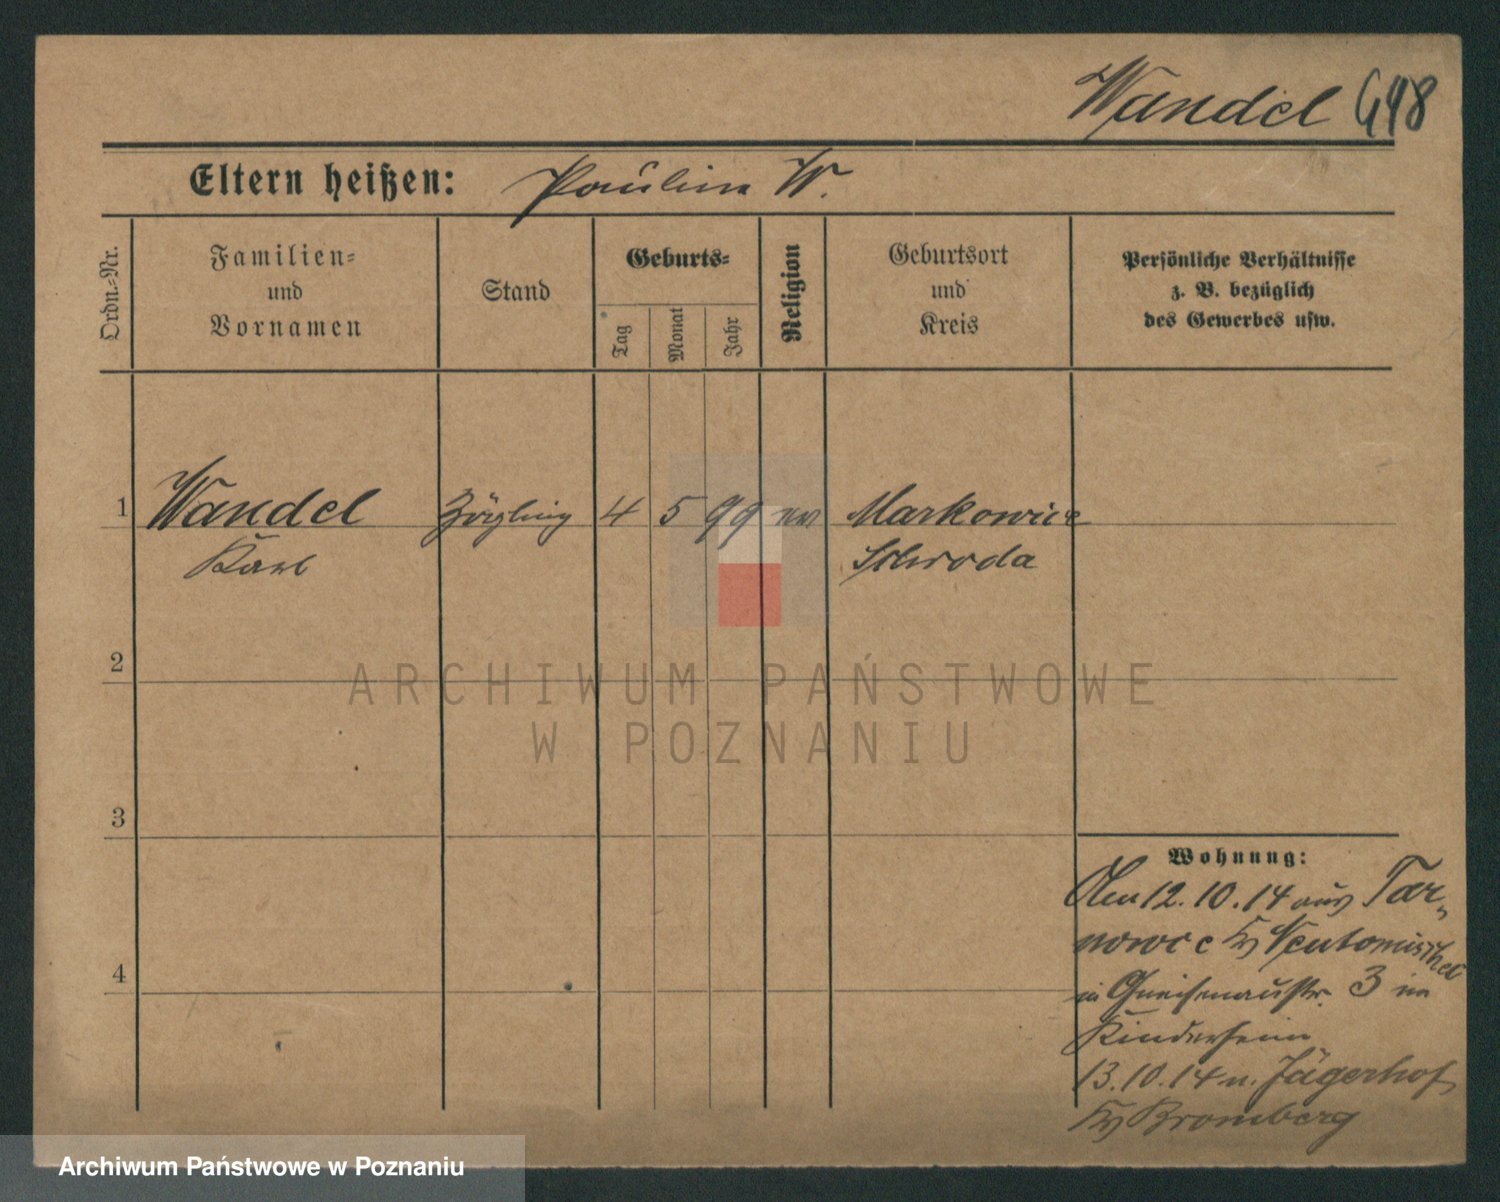 Wandel 448
Eltern heißen: Paulina W.
Ordn.-Nr.
Familien-
und
Vornamen
Stand
Geburts-
Tag
Monat
Jahr
Religion
Geburtsort
und
Kreis
Persönliche Verhältnisse
z. B. bezüglich
des Gewerbes usw.
1 Wandel Zögling 4 5 99 Markowice
Karl Schroda
2
ARCHIWUM PAŃSTWOWE
W POZNANIU
3
Wohnung:
Am 12.10.14 aus Tar-
nowic Kr Neutomischel
in Gneisenaustr. 3 im
4
Kinderheim
13.10.14 n. Jägerhof
Kr Bromberg
Archiwum Państwowe w Poznaniu